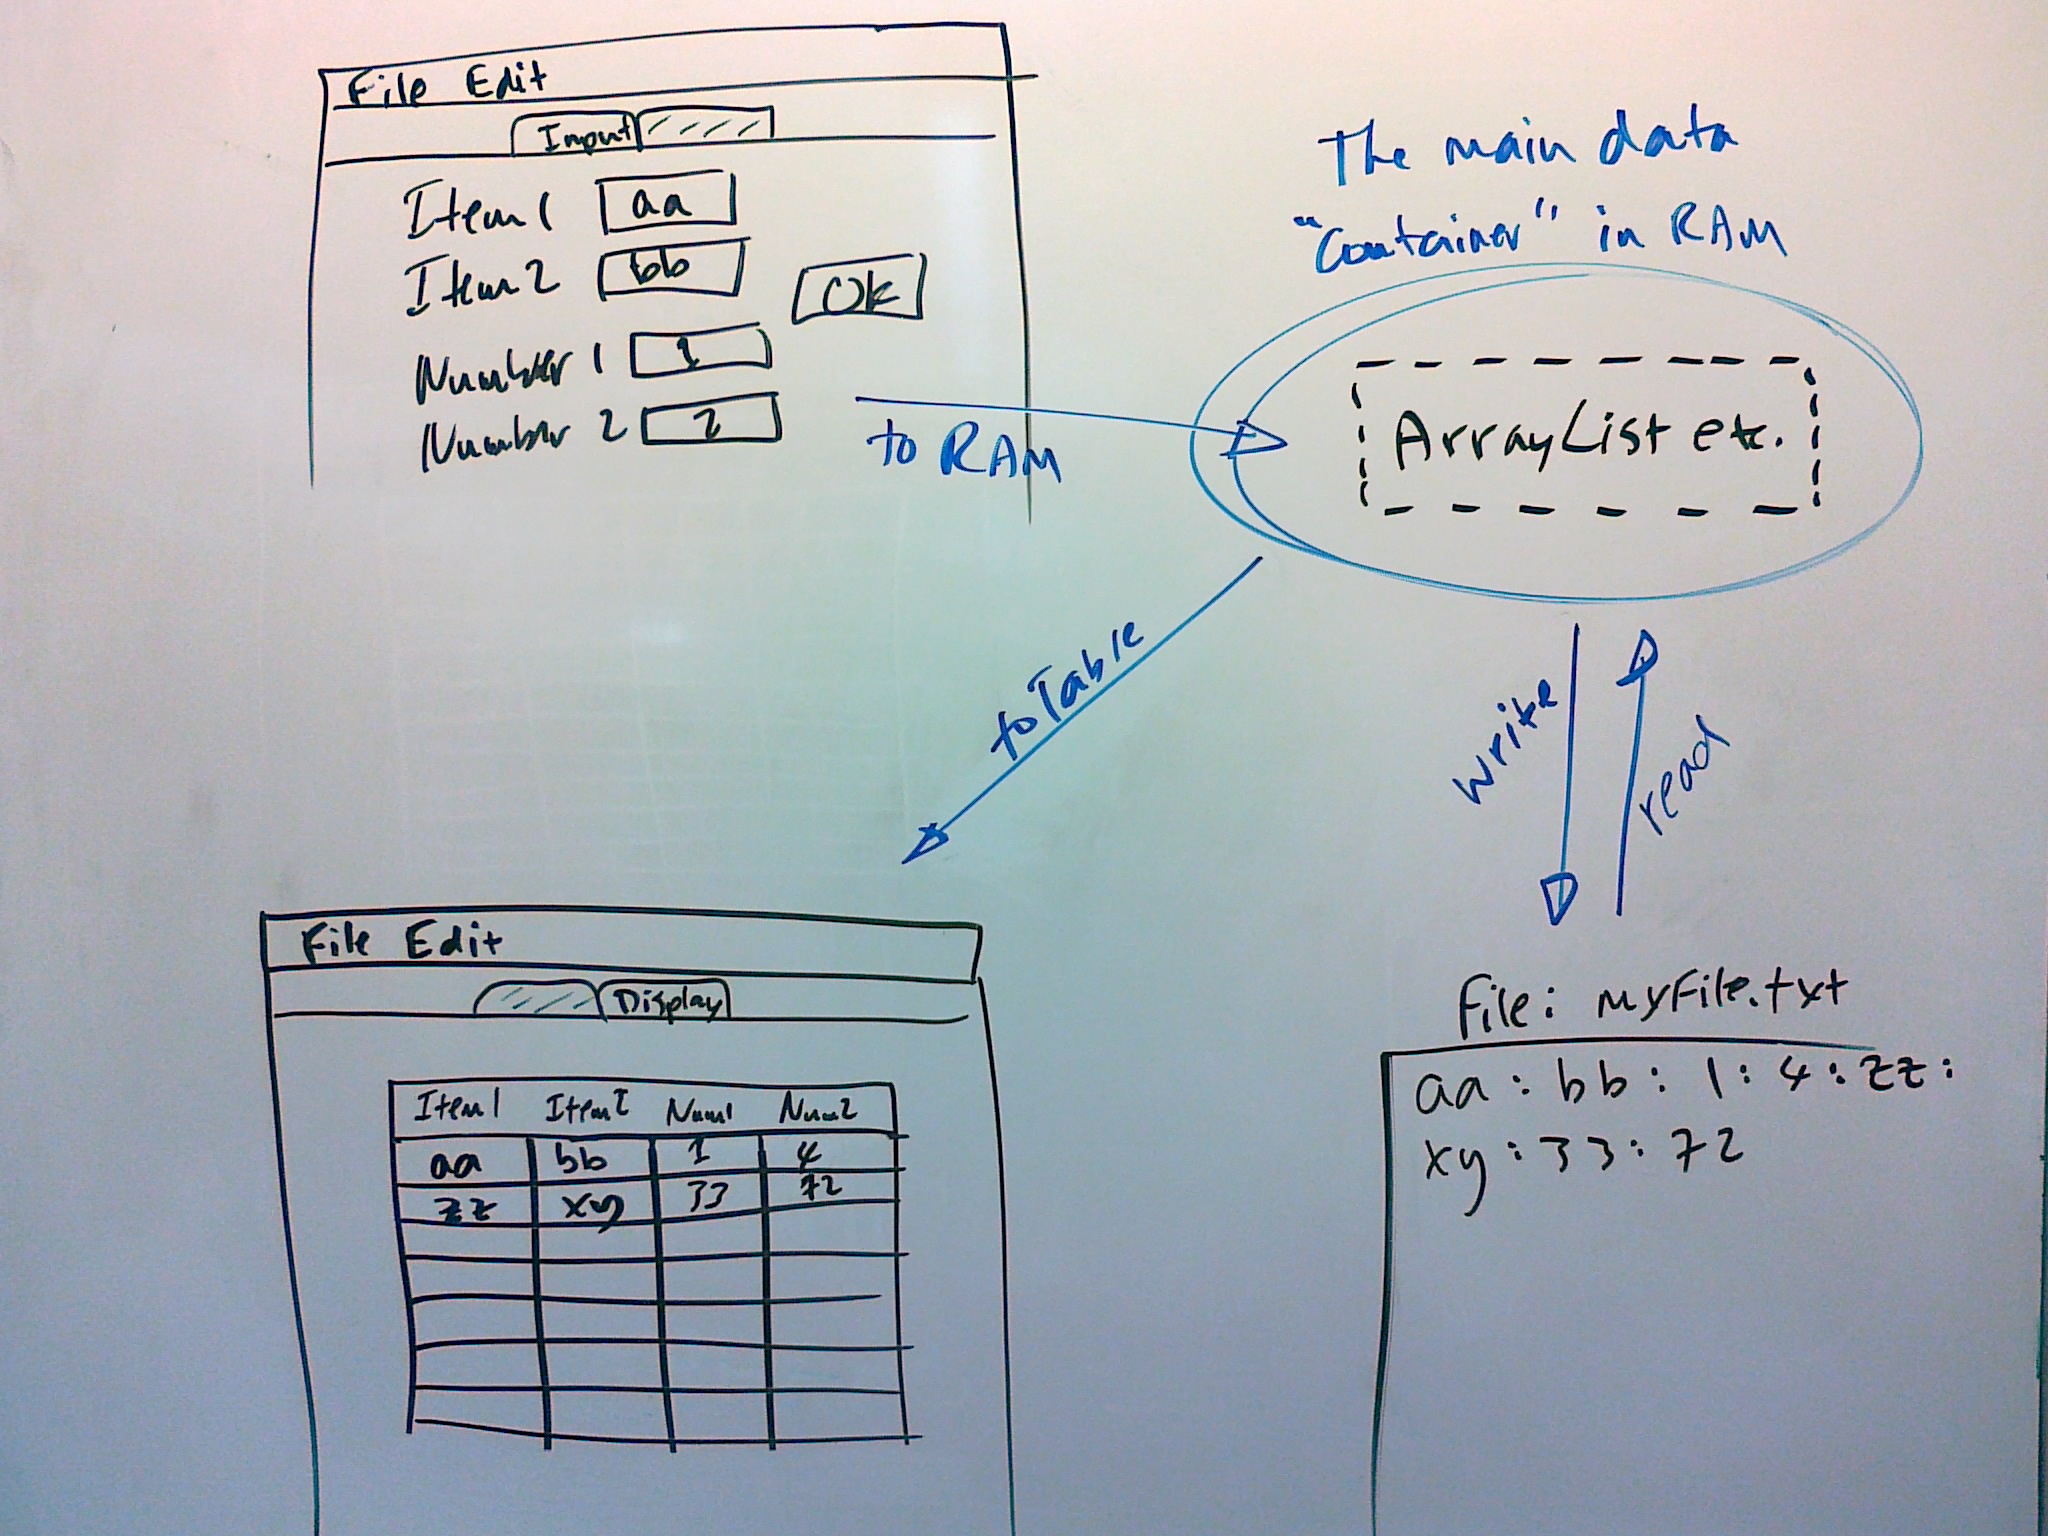 File Edit
Input
Item1 aa
Item2 bb
Ok
Number 1 1
Number 2 2
to RAM
The main data
"Container" in RAM
ArrayList etc.
toTable
write
read
File Edit
Display
Item1 Item2 Num1 Num2
aa bb 1 4
zz xy 33 72
File: myFile.txt
aa : bb : 1 : 4 : zz :
xy : 33 : 72